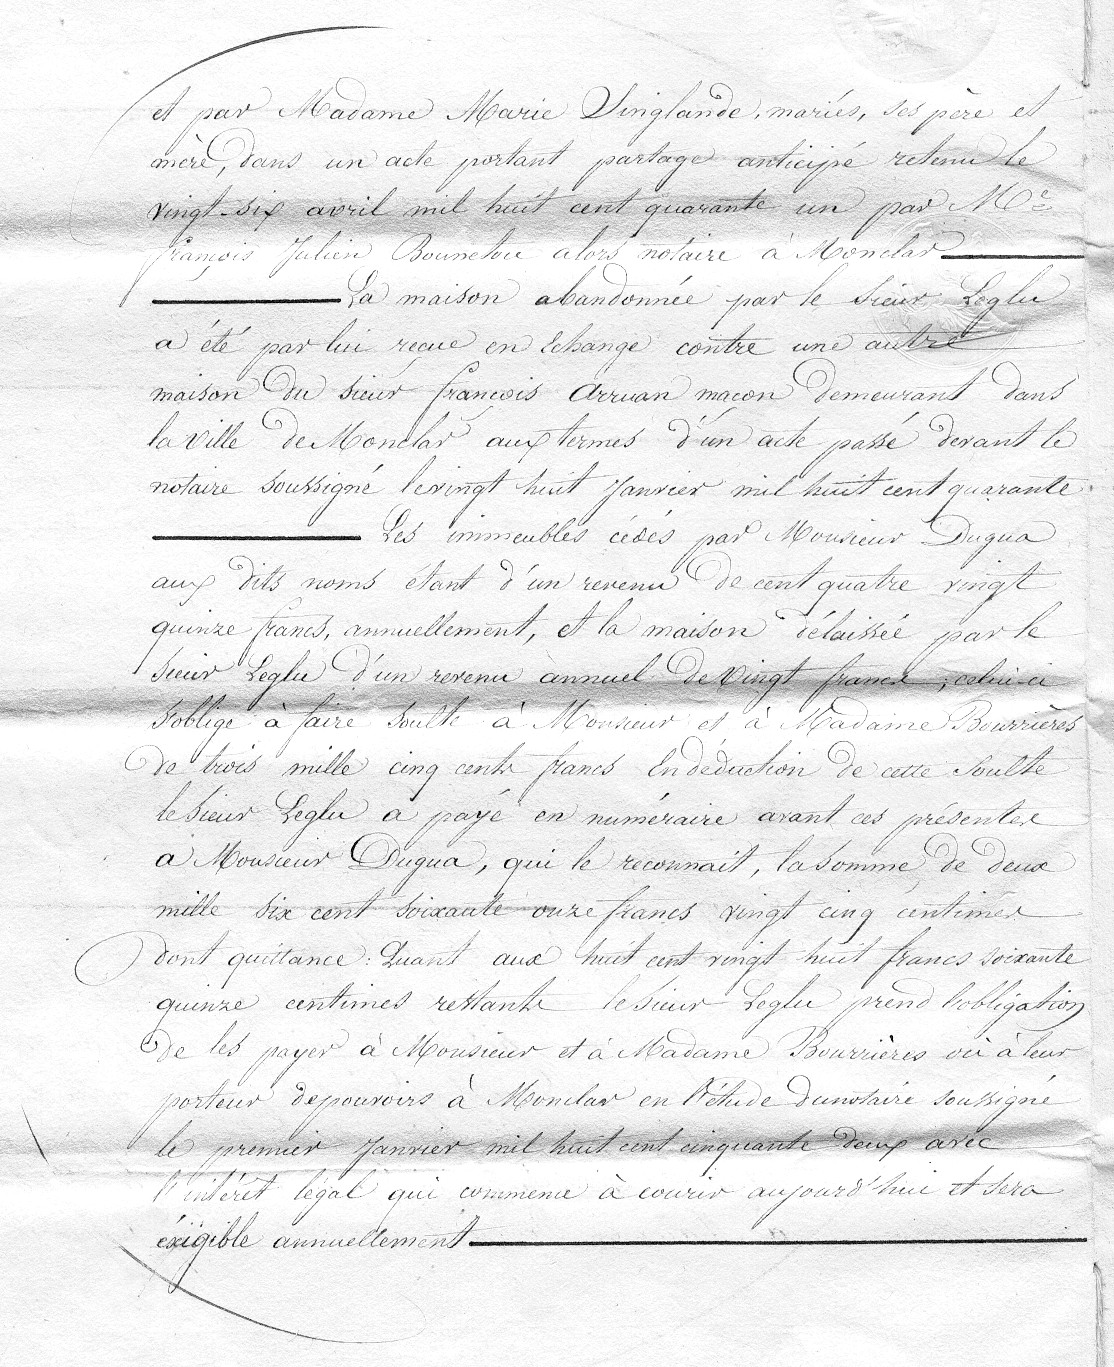 et par Madame Marie Singlande, mariés, ses père et
mère, dans un acte portant partage anticipé retenu le
vingt-six avril mil huit cent quarante un par Me
françois Julien alors notaire à Monclar
La maison abandonnée par le Sieur Leglu
a été par lui reçue en Echange contre une autre
maison du sieur françois Arruan macon demeurant dans
la ville de Monclar aux termes d'un acte passé devant le
notaire soussigné le vingt huit Janvier mil huit cent quarante
Les immeubles cédés par Monsieur Dugua
aux dits noms étant d'un revenu de cent quatre vingt
quinze francs, annuellement, et la maison délaissée par le
Sieur Leglu d'un revenu annuel de vingt francs ; celui-ci
s'oblige à faire soulte à Monsieur et à Madame Bourrières
de trois mille cinq cents francs En déduction de cette soulte
le Sieur Leglu a payé en numéraire avant ces présentes
a Monsieur Dugua, qui le reconnait, la somme de deux
mille six cent soixante onze francs vingt cinq centimes
dont quittance : Quant aux huit cent vingt huit francs soixante
quinze centimes restants le Sieur Leglu prend l'obligation
de les payer à Monsieur et à Madame Bourrières où à leur
porteur de pouvoirs à Monclar en l'étude du notaire soussigné
le premier Janvier mil huit cent cinquante deux avec
l'intérêt légal qui commence à courir aujourd'hui et sera
éxigible annuellement